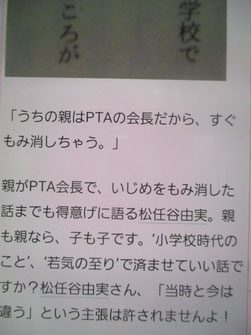 学校で
ごろが
「うちの親はPTAの会長だから、すぐ
もみ消しちゃう。」
親がPTA会長で、いじめをもみ消した
話までも得意げに語る松任谷由実。親
も親なら、子も子です。‘小学校時代の
こと’、‘若気の至り’で済ませていい話で
すか？松任谷由実さん、「当時と今は
違う」という主張は許されませんよ！